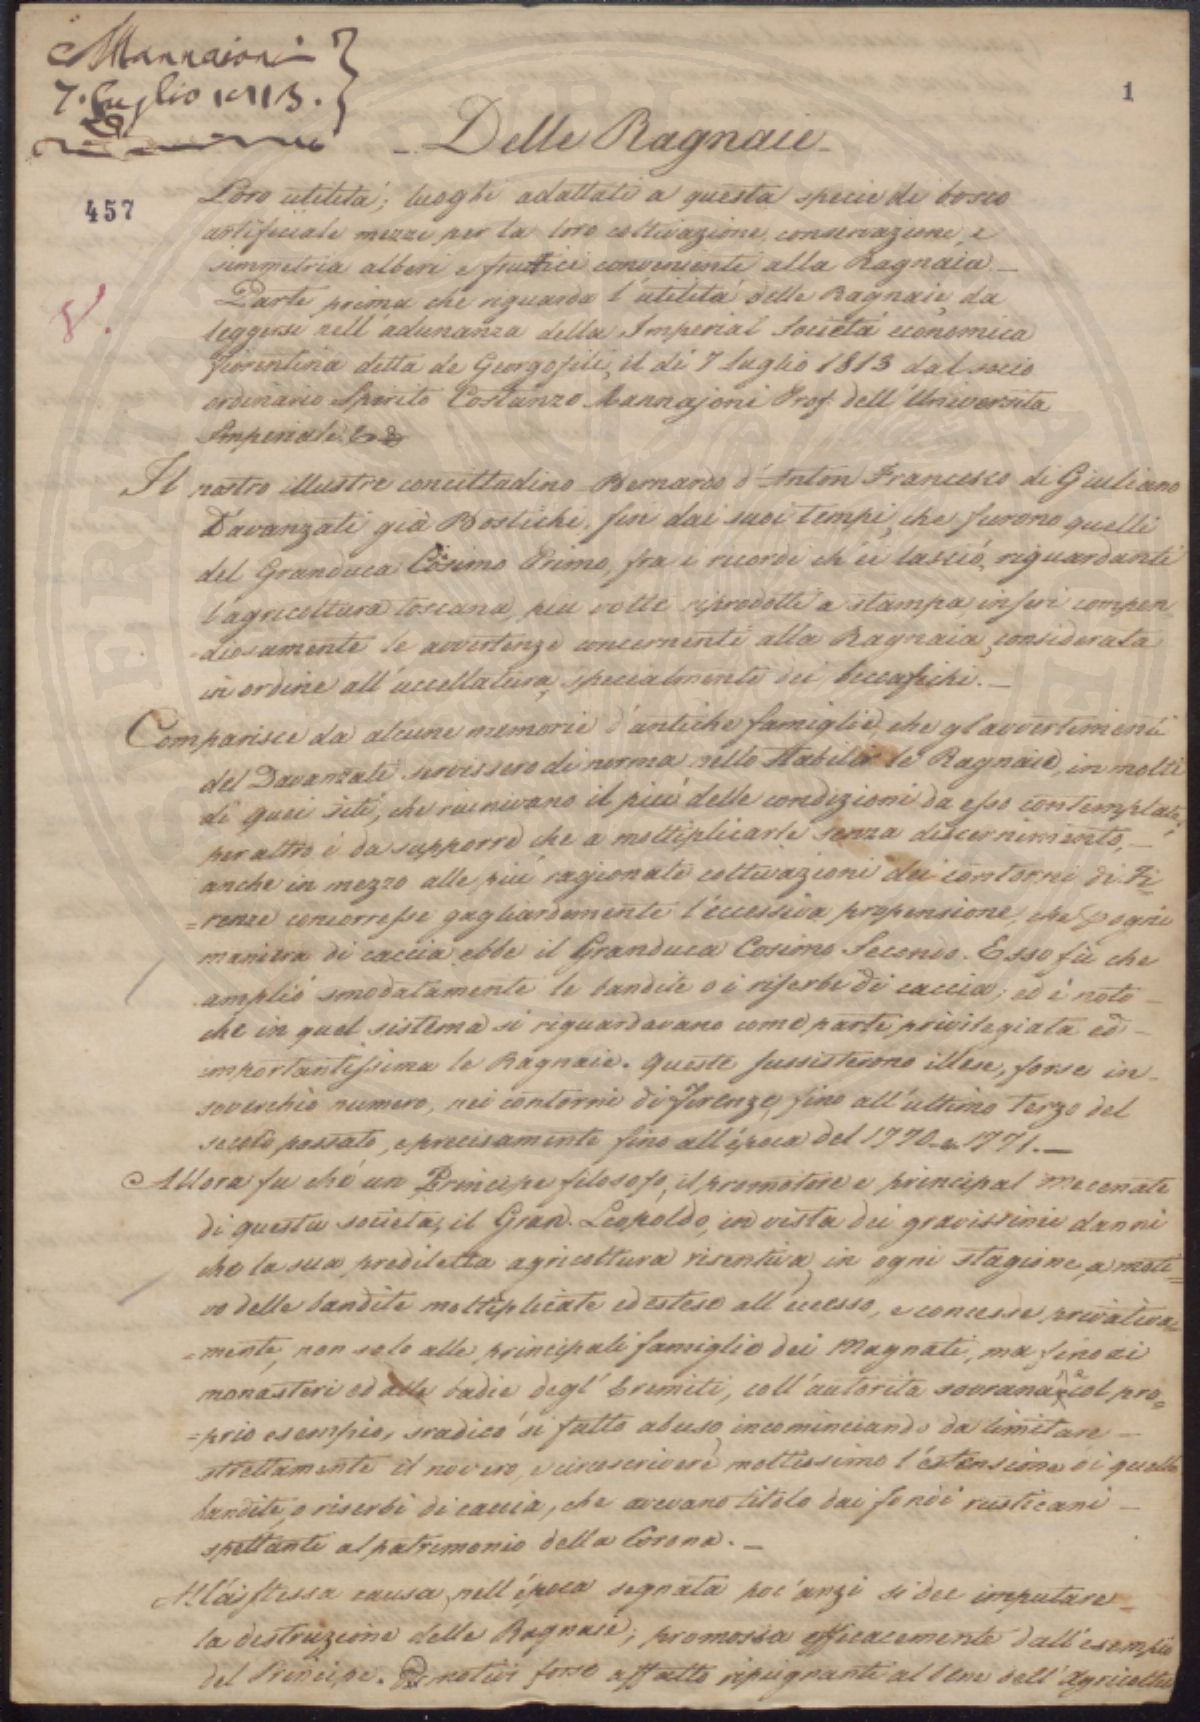 Mannaioni
7. Luglio 1813.
1
Delle Ragnaie
457
Loro utilità; luoghi adattati a questa specie di bosco
artificiale mezzi per la loro coltivazione, conservazione, e
simmetria alberi e frutici convenienti alla Ragnaia —
Parte prima che riguarda l'utilità delle Ragnaie, da
leggersi nell'adunanza della Imperial Società economica
fiorentina detta de Georgofili, il dì 7 Luglio 1813 dal socio
ordinario Spirito Costanzo Mannajoni Prof. dell'Università
Imperiale
Il nostro illustre concittadino Bernardo d'Anton Francesco di Giuliano
Davanzati già Bostichi, fin dai suoi tempi, che furono quelli
del Granduca Cosimo Primo, fra i ricordi ch'ei lasciò, riguardanti
l'agricoltura toscana, più volte riprodotti a stampa inserì compen
diosamente le avvertenze concernenti alla Ragnaia, considerata
in ordine all'uccellatura, specialmente dei beccafichi. —
Comparisce da alcune memorie d'antiche famiglie, che gl'avvertimenti
del Davanzati servissero di norma nello stabilir le Ragnaie, in molti
di quei siti, che riunivano il più delle condizioni da esso contemplate;
per altro è da supporre che a moltiplicarle senza discernimento, —
anche in mezzo alle più ragionate coltivazioni dei contorni di Fi-
=renze concorresse gagliardamente l'eccessiva propensione, che p ogni
maniera di caccia ebbe il Granduca Cosimo Secondo. Esso fù che
ampliò smodatamente le bandite o i riserbi di caccia; ed è noto —
che in quel sistema si riguardavano come parte privilegiata ed —
importantissima le Ragnaie. Queste sussisterono illese, forse in
soverchio numero, nei contorni di Firenze, fino all'ultimo terzo del
secolo passato, e precisamente fino all'época del 1770 1771. —
Allora fu che un Principe filosofo, il promotore e principal mecenate
di questa società, il Gran. Leopoldo, in vista dei gravissimi danni
che la sua prediletta agricoltura risentiva in ogni stagione, a moti=
vo delle bandite moltiplicate ed estese all'eccesso, e concesse privativa=
=mente, non solo alle principali famiglie dei Magnati, ma fino ai
monasteri ed alle badie degl'Eremiti, coll'autorità sovrana, e col pro=
=prio esempio, sradicò sì fatto abuso, incominciando da limitare —
strettamente il novero, e circoscrivere moltissimo l'estensione di quelle
bandite, o riserbi di caccia, che avevano titolo dai fondi rusticani —
spettanti al patrimonio della Corona. —
All'istessa causa, nell'época segnata poc'anzi si dee imputare —
la distruzione delle Ragnaie; promossa efficacemente dall'esempio
del Principe. motivi forse affatto ripugnanti al bene dell'Agricoltu